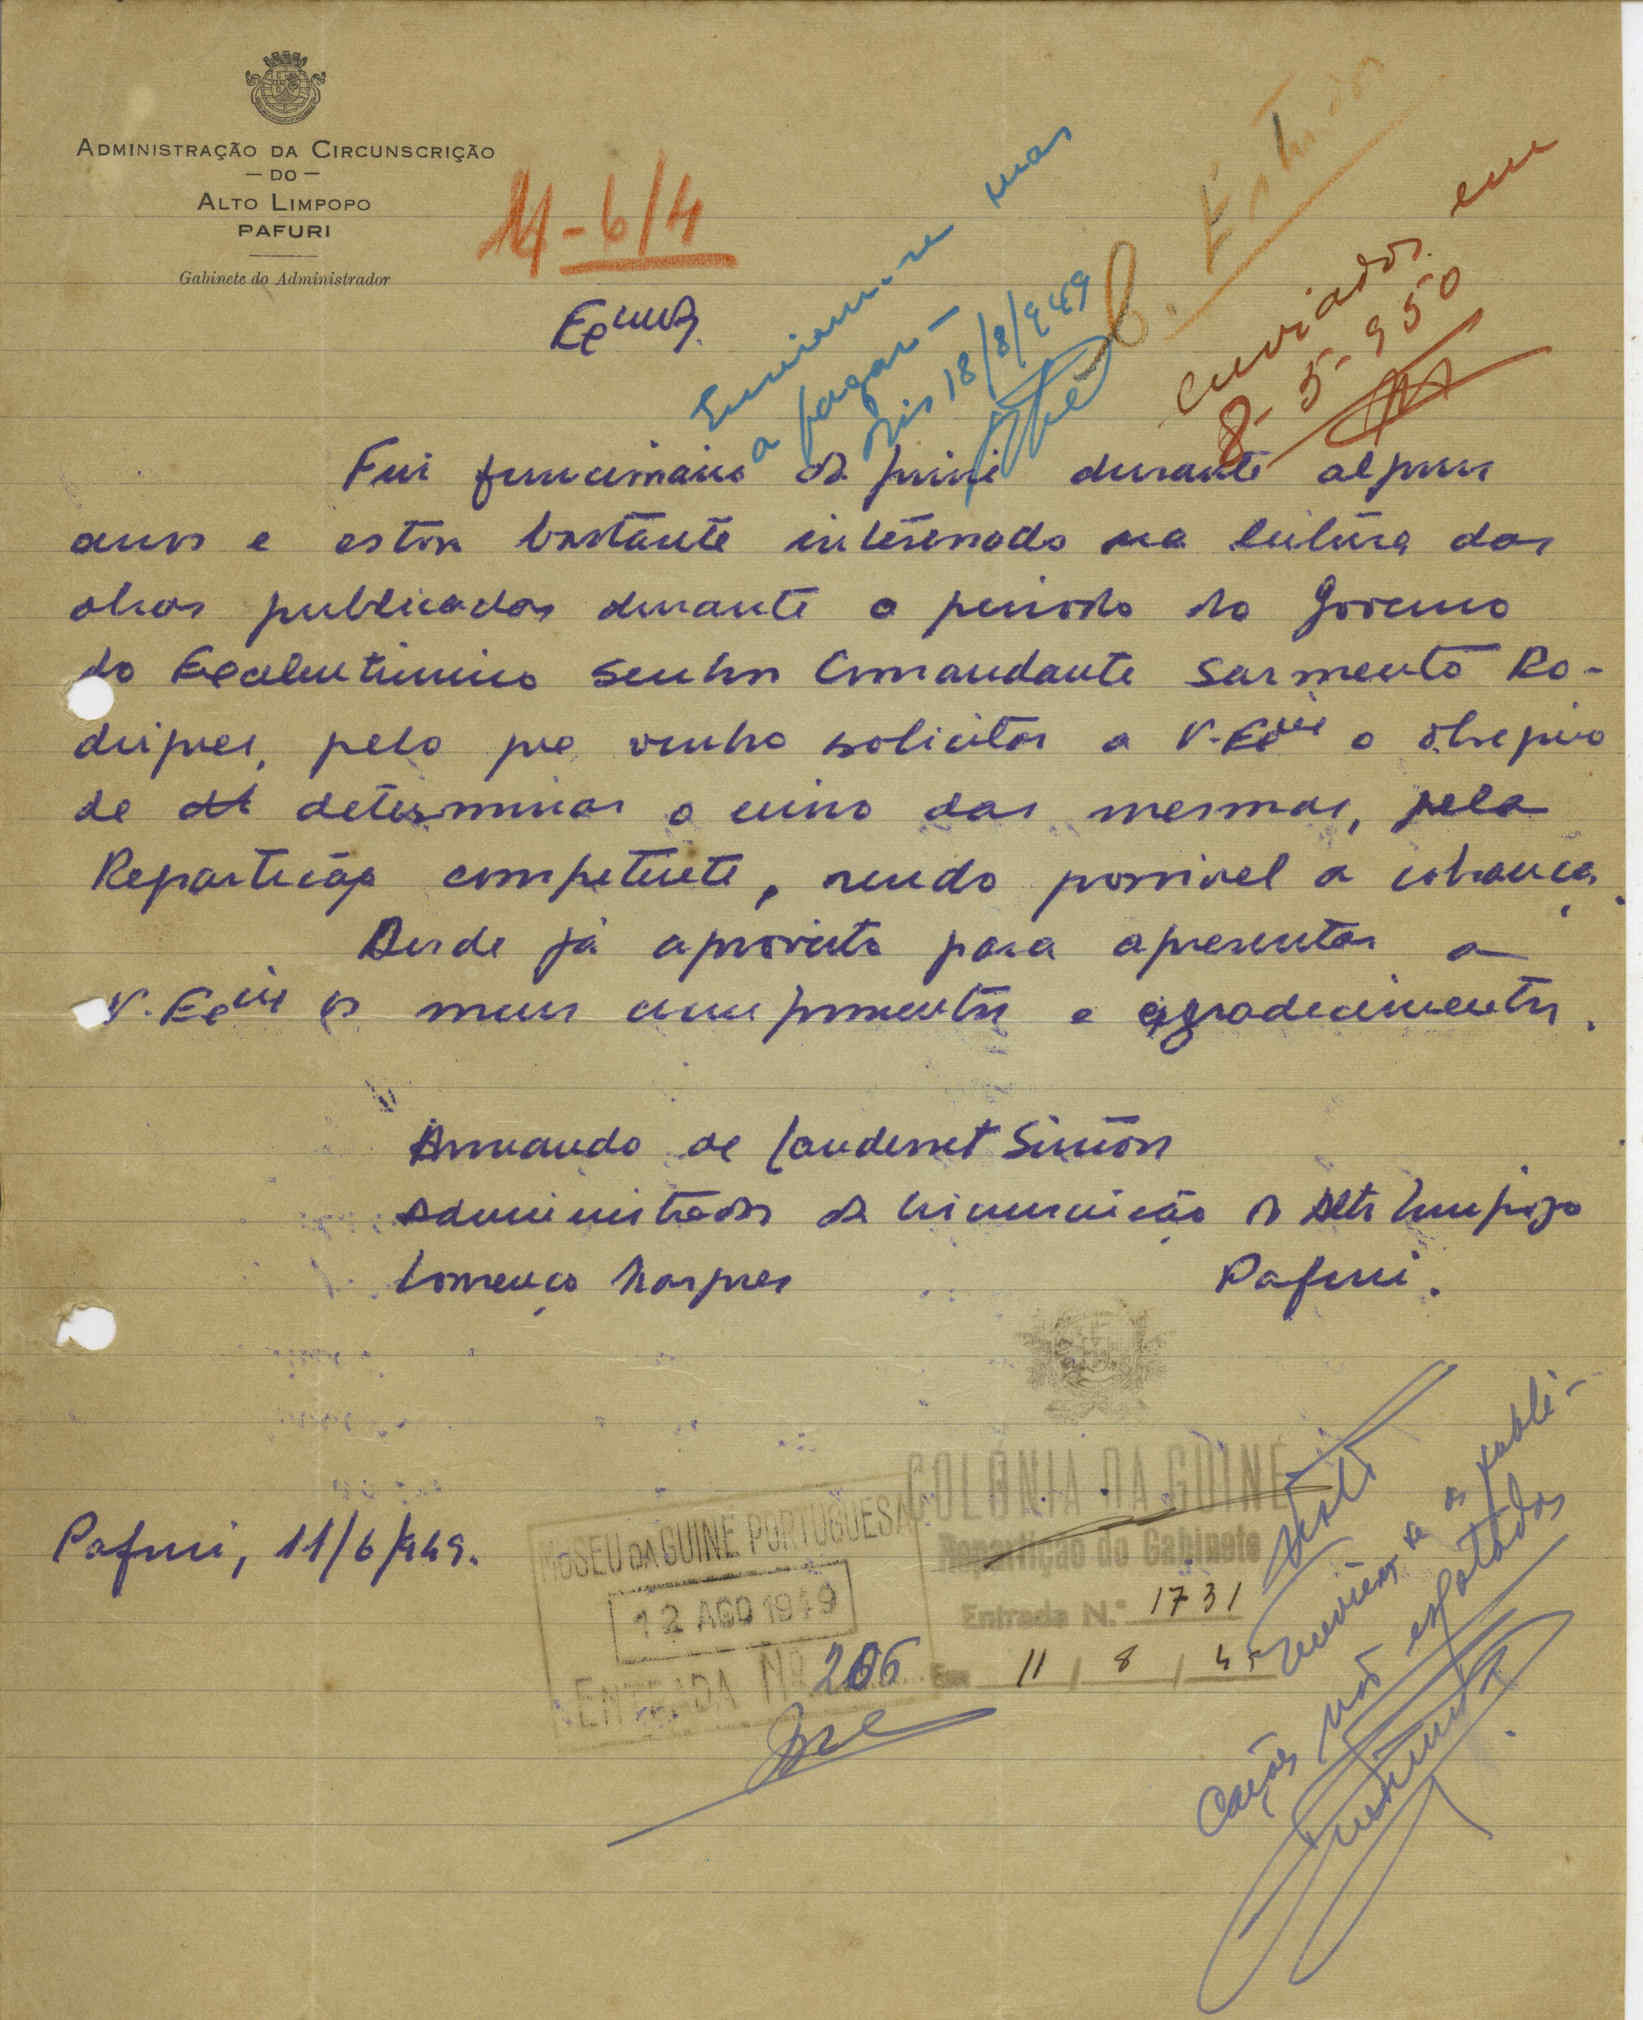 ADMINISTRAÇÃO DA CIRCUNSCRIÇÃO
— DO —
ALTO LIMPOPO
PAFURI
Gabinete do Administrador
11-6/4
Enviem-se mas
a pagar —
18/8/949
C. Estudos
enviados em
8-5-950
Fui funcionário da Guiné durante alguns
anos e estou bastante interessado na leitura das
obras publicadas durante o período do Governo
do Excelentissimo Senhor Comandante Sarmento Ro-
drigues, pelo que venho solicitar a V. Excia o obsequio
de determinar o envio das mesmas, pela
Repartição competente, sendo possivel á cobrança.
Desde já aproveito para apresentar a
V. Excia os meus cumprimentos e agradecimentos.
Armando de Simões
Administrador da Circunscrição do Alto Limpopo
Lourenço Marques Pafuri.
Pafuri, 11/6/949.
COLÓNIA DA GUINÉ
Repartição do Gabinete
Entrada N.º 1731
Em 11 / 8 / 49
MUSEU DA GUINÉ PORTUGUESA
12 AGO 1949
ENTRADA Nº 206
Enviem-se as publi-
cações não esgotadas